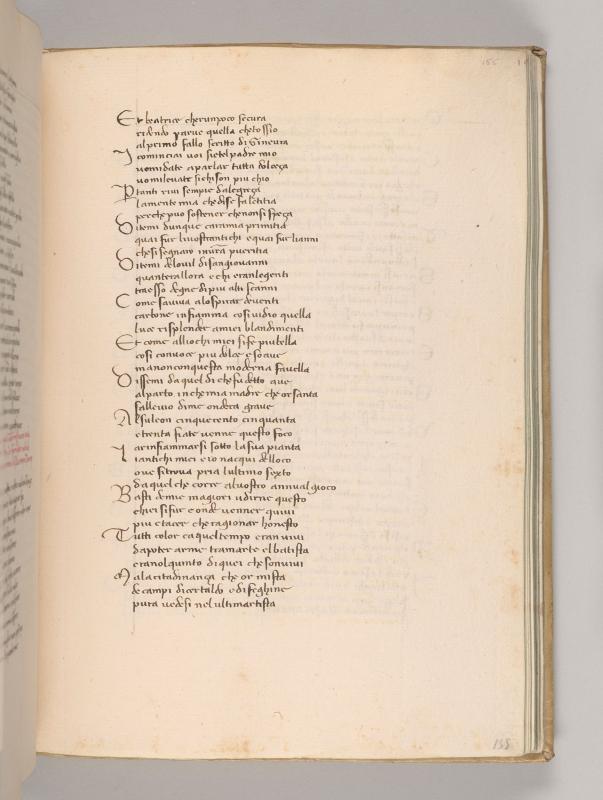 155
Et beatrice cherunpoco secura
ridendo parve quella chetossio
alprimo fallo scritto di Ginevra
I cominciai voi sietel padre mio
voimidate aparlar tutta dolceça
voimilevate sichison piu chio
P tanti rivi sempie dalegreça
lamente mia chedise fa letitia
perche puo sostener chenonsi speça
D itemi dunque cara mia primitia
quai fur livostrantichi equai fur lianni
chesisegnaro invrã pueritia
D itemi delovil disangiovanni
quanterallora echi eranlegenti
traesso degne dipiu alti scanni
C ome saviva alospirar deventi
carbone infiamma cosividio quella
luce risplendere amiei blandimenti
Et come alliochi miei sife piubella
cosi convoce piu dolce esoave
manonconquesta moderna favella
D issemi daquel di chefudetto ave
alparto inchemia madre chorsanta
sallevio dime ondera grave
Alsuleon cinquecento cinquanta
etrenta fiate venne questo foco
arinfiammarsi sotto lasua pianta
I iantichi miei eio nacqui delloco
ove sitrova pria lultimo sexto
daquel che corre alvostro annual gioco
B asti demie magiori udirne questo
chiei sifur eonde venner quivi
piu etacer che ragionar honesto
Tutti color caqueltempo eran vivi
dapoter arme tramarte elbatista
eranolquinto diquei chesonvivi
Malacitadinança che or mista
decampi dicertaldo edifeghine
pura vedesi nelultimartista
155